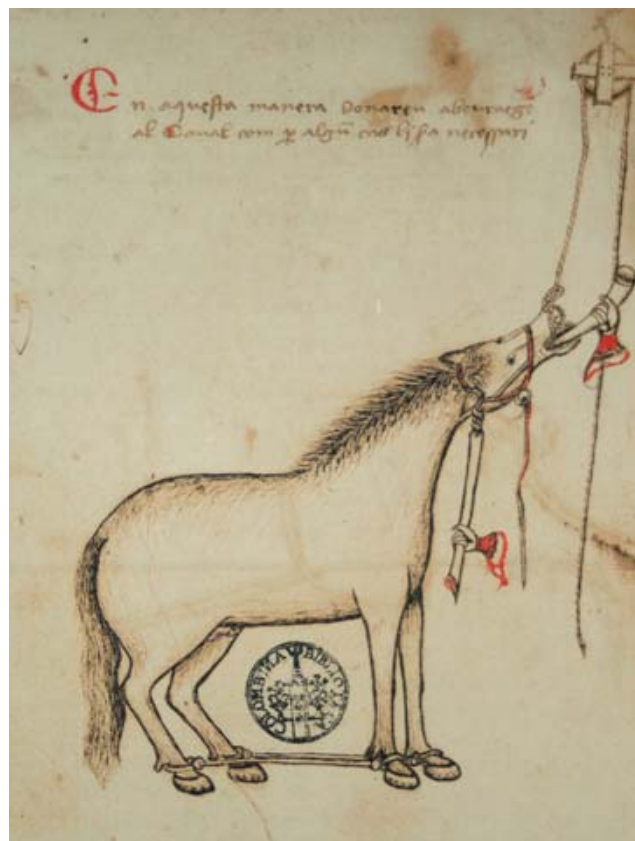 En aquesta manera donareu abeurage
al Caual com ꝑ algũ cas li sa necessari
COLOMBINA BIBLIOTECA